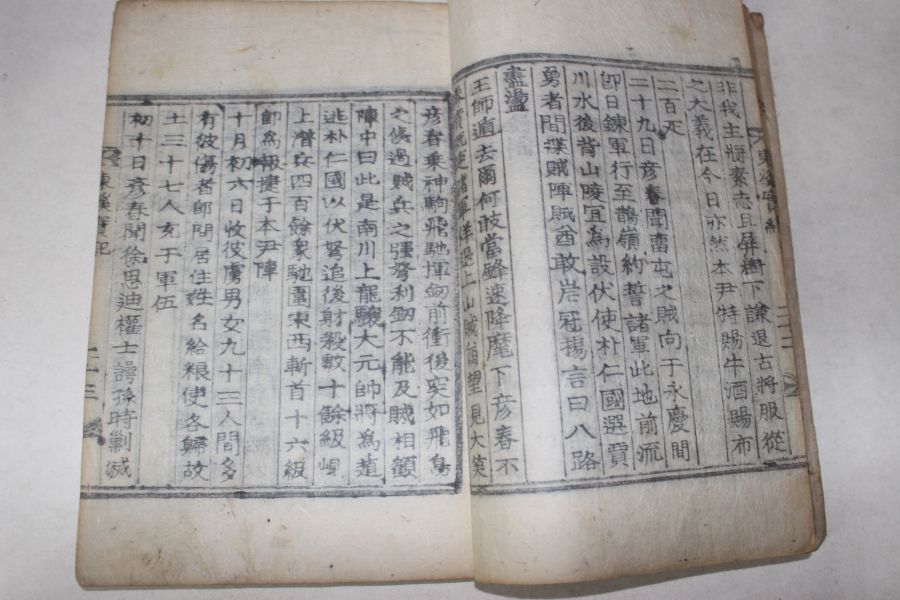 東溪實紀
非我主將素志且屏樹下謙退古將服從
之大義在今日亦然本尹特賜牛酒賜布
二百疋
二十九日彦春聞雷屯之賊向于永慶間
卽日鍊軍行至鵲嶺約誓諸軍此地前流
川水後背山陵宜爲設伏使朴仁國選賈
勇者間諜賊陣賊酋敢岸冠揚言曰八路
盡盪
王師遁去爾何敢當鋒速降麾下彦春不
諸軍佯退上山賊酋望見大笑
彦春乘神駒飛馳揮劒前衝後突如飛鳥
之倏過賊兵之强弩利劒不能及賊相顧
陣中曰此是南川上龍驤大元帥將爲遁
逃朴仁國以伏弩追後射殺數十餘級峴
上潛兵四百餘衆馳圍東西斬首十六級
卽爲報捷于本尹陣
十月初六日收彼虜男女九十三人間多
有彼傷者師問居住姓名給粮使各歸故
土三十七人女于軍伍
初十日彦春聞徐思迪權士諤孫時剿滅
東溪實記